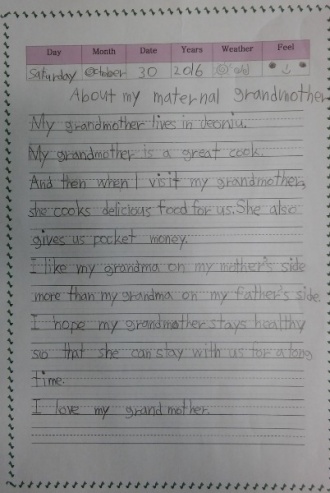 Day Month Date Years Weather Feel
Saturday October 30 2016
About my maternal grandmother
My grandmother lives in Jeonju.
My grandmother is a great cook.
And then when I visit my grandmother,
she cooks delicious food for us. She also
gives us pocket money.
I like my grandma on my mother's side
more than my grandma on my father's side.
I hope my grandmother stays healthy
so that she can stay with us for a long
time.
I love my grandmother.